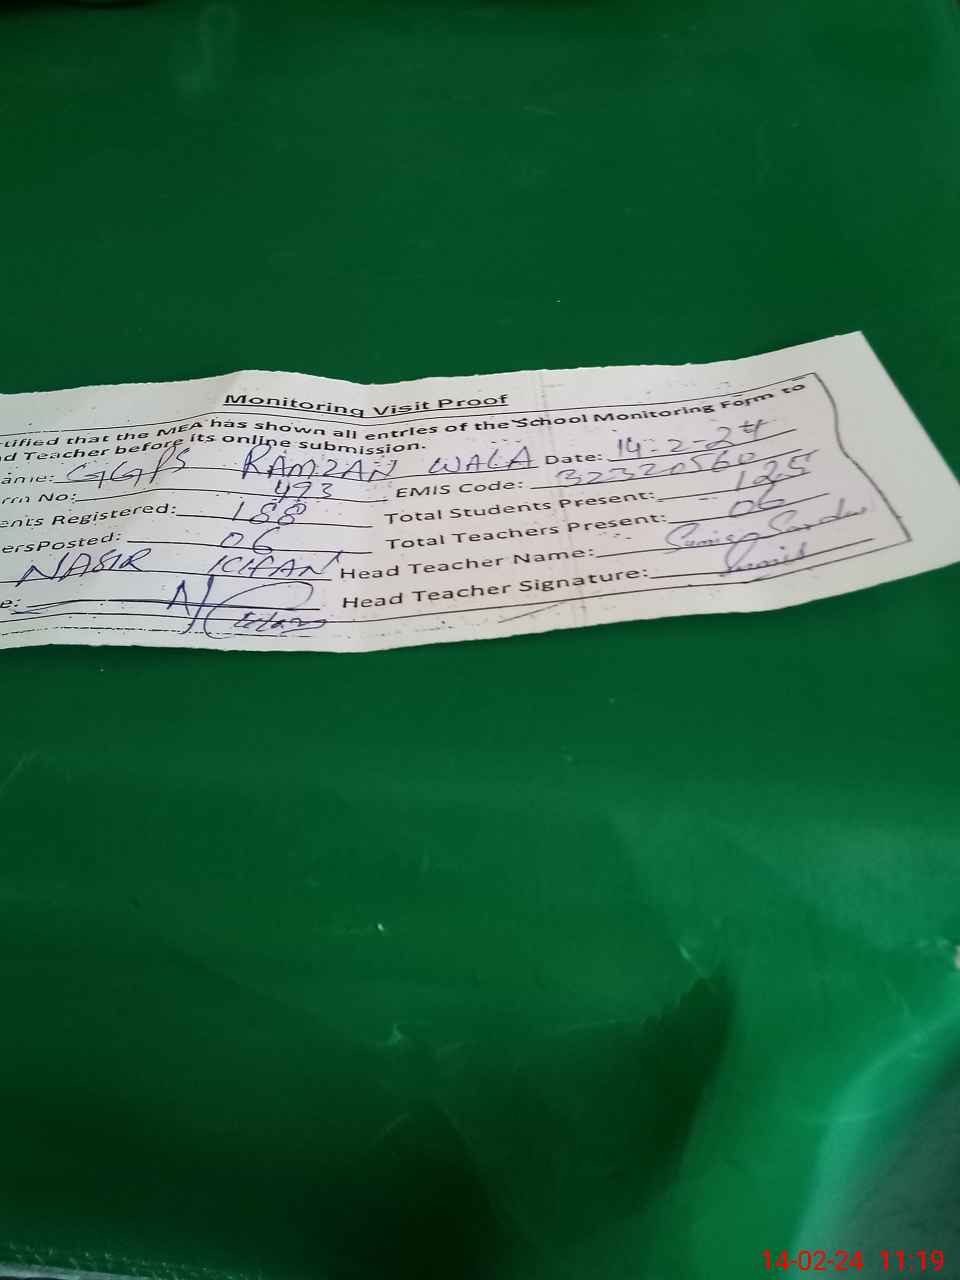 Monitoring Visit Proof
tified that the MEA has shown all entries of the School Monitoring Form to
d Teacher before its online submission.
ame: GGPS RAMZAN WALA Date: 14-2-24
rm No: 493 EMIS Code: 32320560
ents Registered: 188 Total Students Present: 125
ersPosted: 06 Total Teachers Present: 06
NASIR KHAN Head Teacher Name:
e: Head Teacher Signature:
14-02-24 11:19